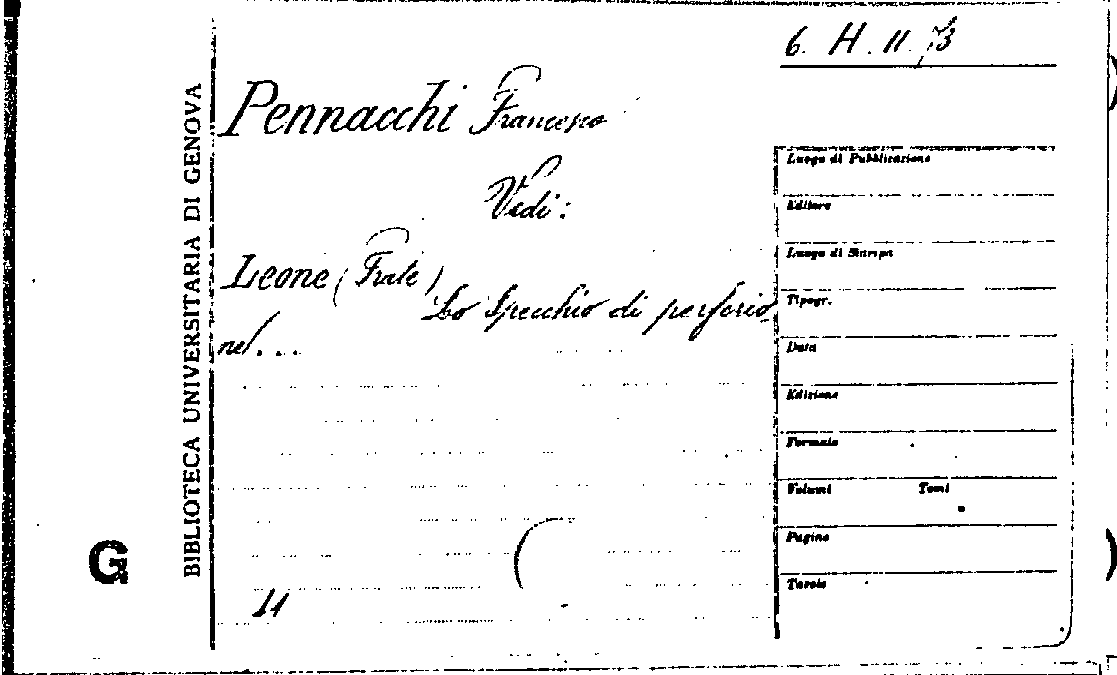 6. H. 11. 73
Pennacchi Francesco
Vedi:
Leone (Frate)
Lo Specchio di perfezio
ne/. . .
11
G
BIBLIOTECA UNIVERSITARIA DI GENOVA
Luogo di Pubblicazione
Editore
Luogo di Stampa
Tipogr.
Data
Edizione
Formato
Volumi Tomi
Pagine
Tavole